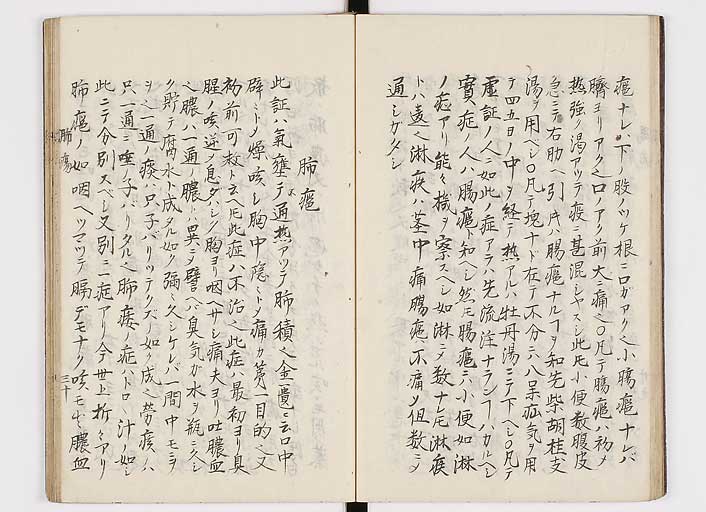 癰ナレバ下ノ股ノツケ根ニ口ガアク也小腸癰ナレバ
臍ヨリアク也口ノアク前大ニ痛也〇凡テ腸癰ハ初メ
熱強ク渇アツテ疫ニ甚混シヤスシ此トモ小便数腹皮
急ニテ右肋ヘ引片ハ腸癰ナルヿヲ知先柴胡桂支
湯ヲ用ベシ〇凡テ塊ナド在テ不分ニハ呆疝気ヲ用
テ四五日ノ中ヲ経テ熱アルハ牡丹湯ニテ下ベシ〇凡テ
虚証ノ人ニ如此ノ症アラハ先流注ナランヿハカルベシ
實症ノ人ハ腸癰ト知ベシ然モ腸癰ニ小便如淋
ノ症アリ能々機ヲ察スベシ如淋ニメ数ナレトモ淋疾
トハ違也淋疾ハ茎中痛腸癰不痛メ但数ニメ
通シガタシ
肺癰
此証ハ氣壅テ通熱アツテ肺積也金匱ニ云口中
辟々トメ燥咳シ胸中隠々トメ痛カ第一目的也又
初前可救ト云ヘトモ此症ハ不治也此症ハ最初ヨリ臭
腥ノ咳逆ノ息ダハシク胸ヨリ咽ヘサシ痛夫ヨリ吐膿血
也膿ハ一通ノ膿トハ異ニテ譬ヘバ臭気ガ水ヲ瓶ニ久シ
ク貯テ腐水ト成タル如ク弥々久シケレバ一間中モミヲ
ヲ也一通ノ痰ハ只子バリツテクズノ如ク成也労痰ハ
只一通ニ唾ノ子バリタル也肺痿ノ症ハトロ〳〵汁ノ如シ
此ニテ分別スベシ又別ニ一症アリ今世上折々アリ
肺癰ノ如咽ヘツマツテ膈デモナク咳モセズ膿血
肺癰
三十